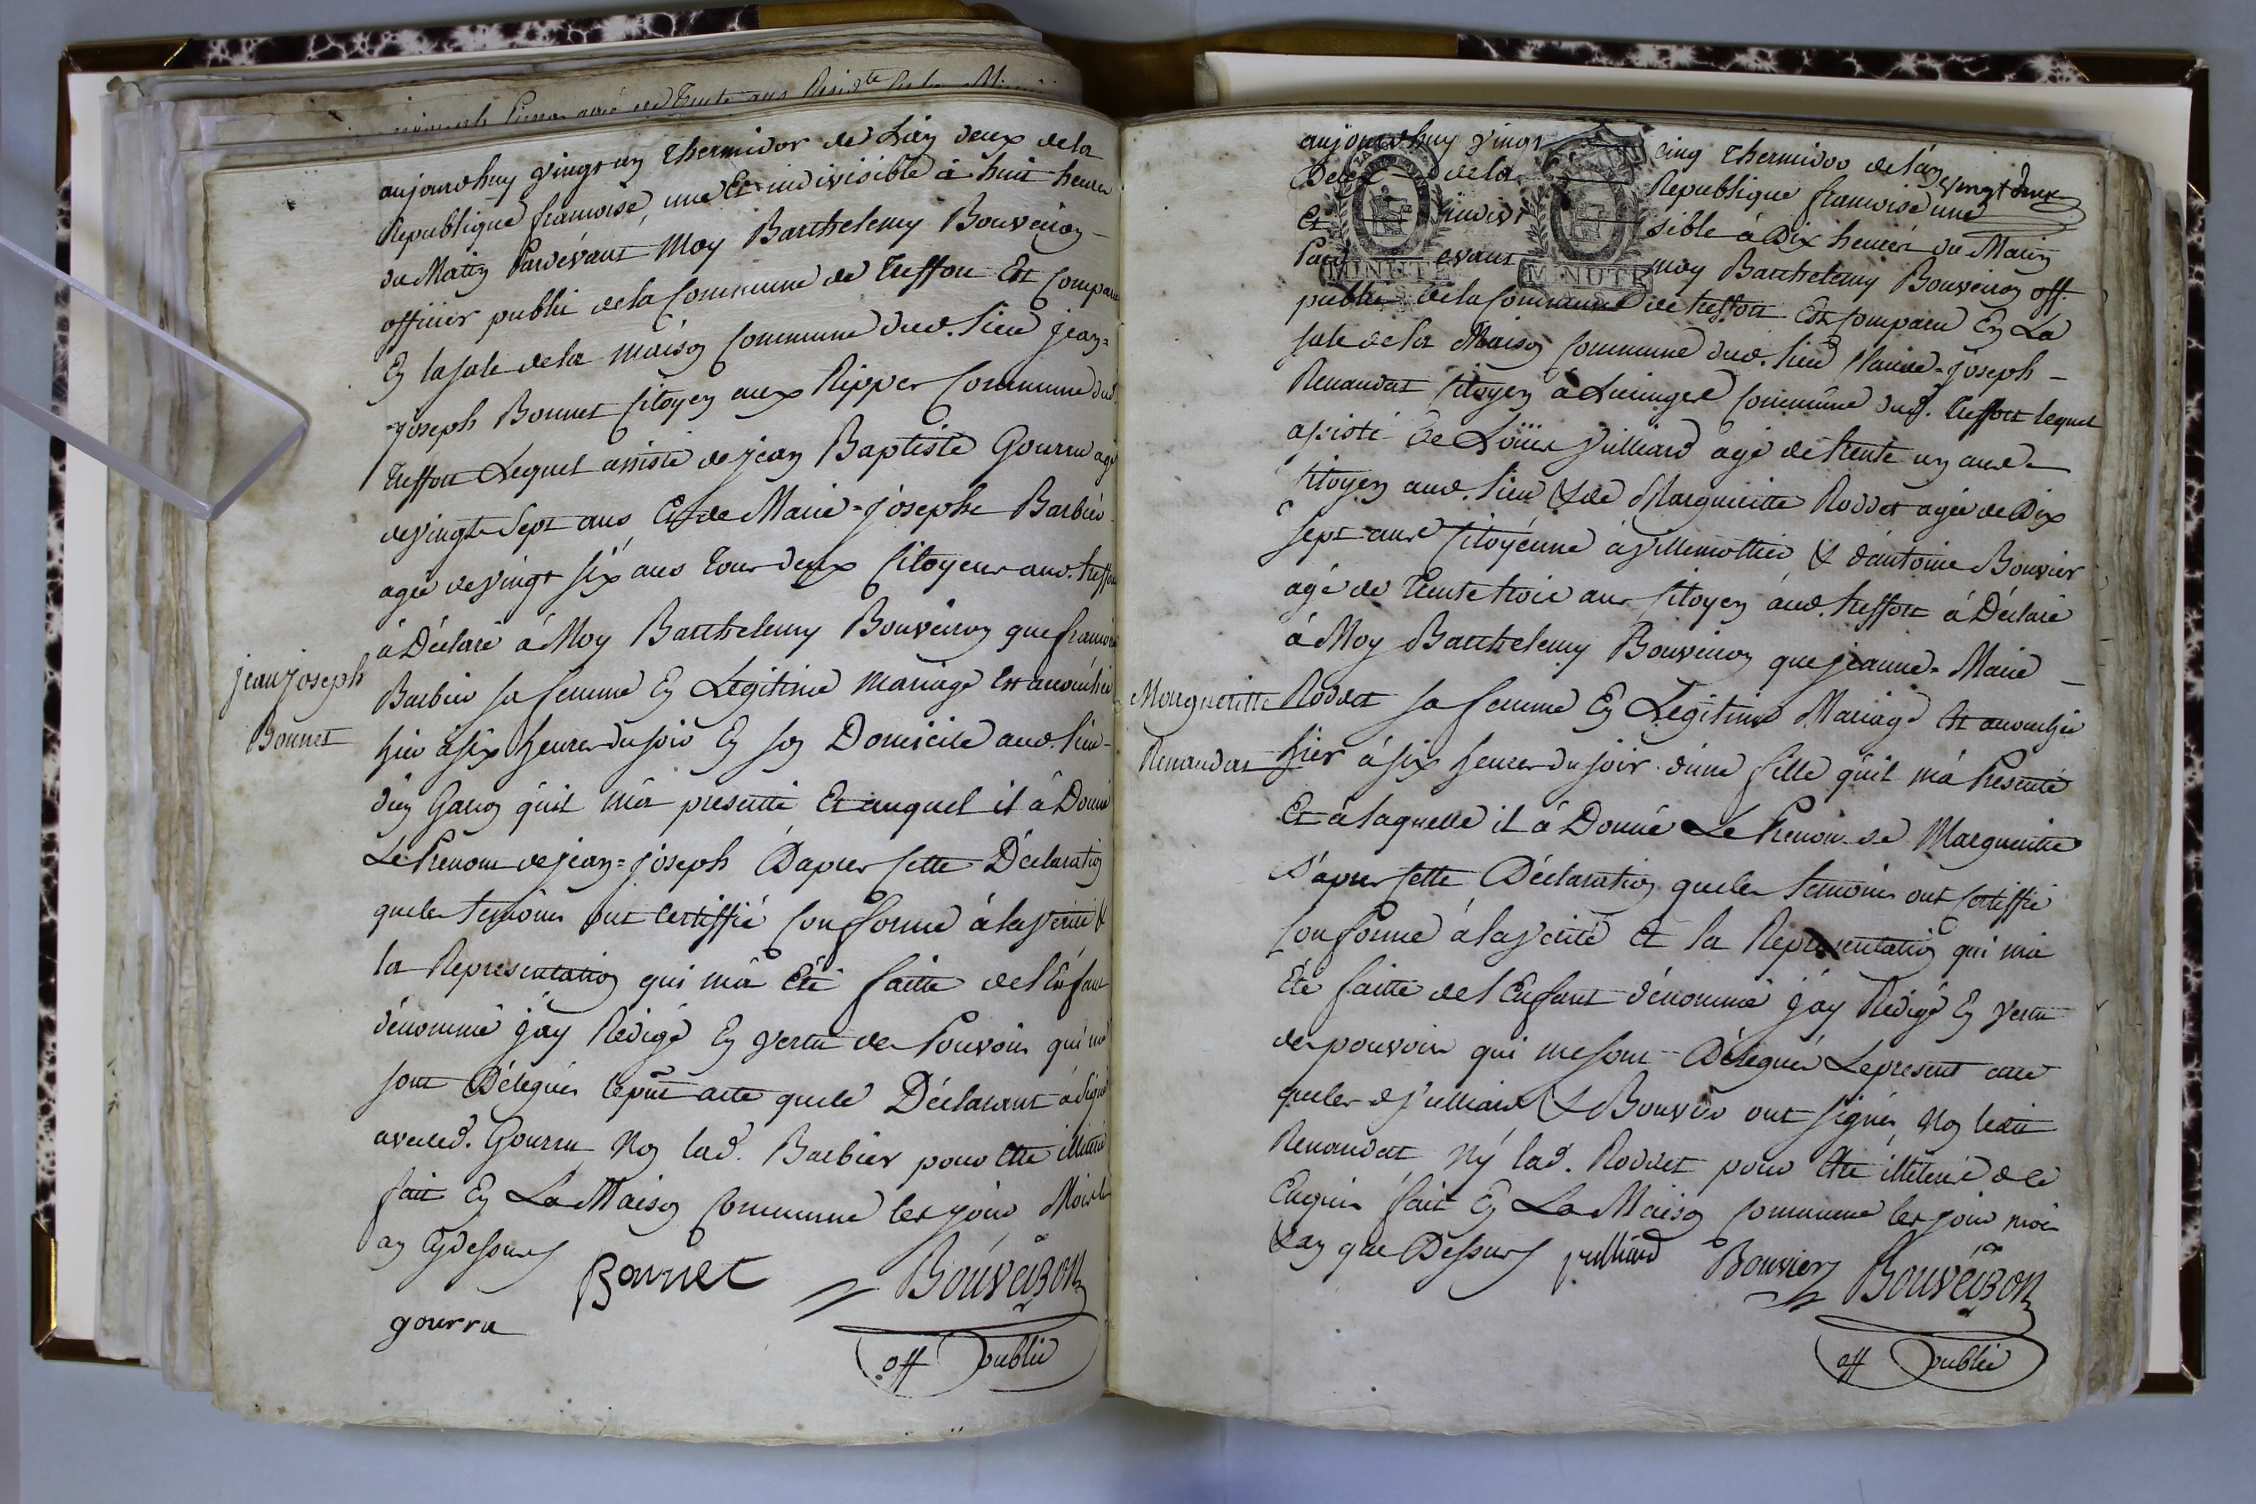 aujourdhuy vingt un thermidor de L'an deux de la
Republique francoise, une Et indivisible à huit heures
du Matin Pardevant Moy Barthelemy Bouveiron
officier public de la Commune de Treffort Est comparu
En la sale de la maison Commune dud. lieu jean=
=joseph Bonnet Citoyen aux Ripper Commune dud.
treffort Lequel assisté de jean Baptiste Gourru agé
de vingt Sept ans Et de Marie=josephe Barbier
agée de vingt six ans tous deux Citoyens aud. treffort
à Déclaré à Moy Barthelemy Bouveiron que francoise
Barbier sa femme En Legitime mariage Est accouchée
hier à six heures du soir En son Domicile aud. lieu
d'un Garçon qu'il m'a presenté Et auquel il à Donné
Le Prenom de jean=joseph D'apres cette Déclaration
que les temoins ont certiffié Conforme à la verité &
la Representation qui m'a Eté faitte de l'Enfant
dénommé j'ay Redigé En vertu des Pouvoirs qui me
sont Délégués le pnt acte que le Déclarant à Signé
avec led. Gourru Non lad. Barbier pour Etre illitéré
fait En La Maison Commune les jour Mois &
an Cydessus
Bonnet
Bouveiron
gourru
off public
jean joseph
Bonnet
aujourdhuy vingt cinq thermidor de l'an
vingt deux
Deux de la Republique francoise une
Et indivisible à Dix heures du Matin
Pardevant moy Barthelemy Bouveiron off.
MINUTE MINUTE
public de la Commune de treffort Est comparu En La
sale de la Maison Commune dud. lieu Claude=joseph
Renaudat Citoyen à Lucinges Commune dud. treffort lequel
assisté de Loüis julliard agé de trente un ans
Citoyen aud. lieu & de Margueritte Roddet agée de Dix
Sept ans Citoyénne à villemottier & d'antoine Bouvier
agé de trente trois ans Citoyen aud. treffort à Déclaré
à Moy Barthelemy Bouveiron que jeanne=Marie
Roddet sa femme En Legitime Mariage Est accouchée
hier à six heures du soir d'une fille qu'il m'à Presenté
Et à laquelle il à Donné Le Prenom de Margueritte
D'apres cette Déclaration que les temoins ont certiffié
Conforme à la verité Et la Representation qui m'à
Eté faitte de l'Enfant dénommé j'ay Redigé En vertu
des pouvoirs qui me sont Délégués Le present acte
que les d julliard & Bouvier ont signés Non ledit
Renaudat Ny lad. Roddet pour Etre illiteré de ce
Enquis fait En La Maison Commune les jour mois
& an que Dessus julliard Bouvier Bouveiron
off public
Margueritte
Renaudat